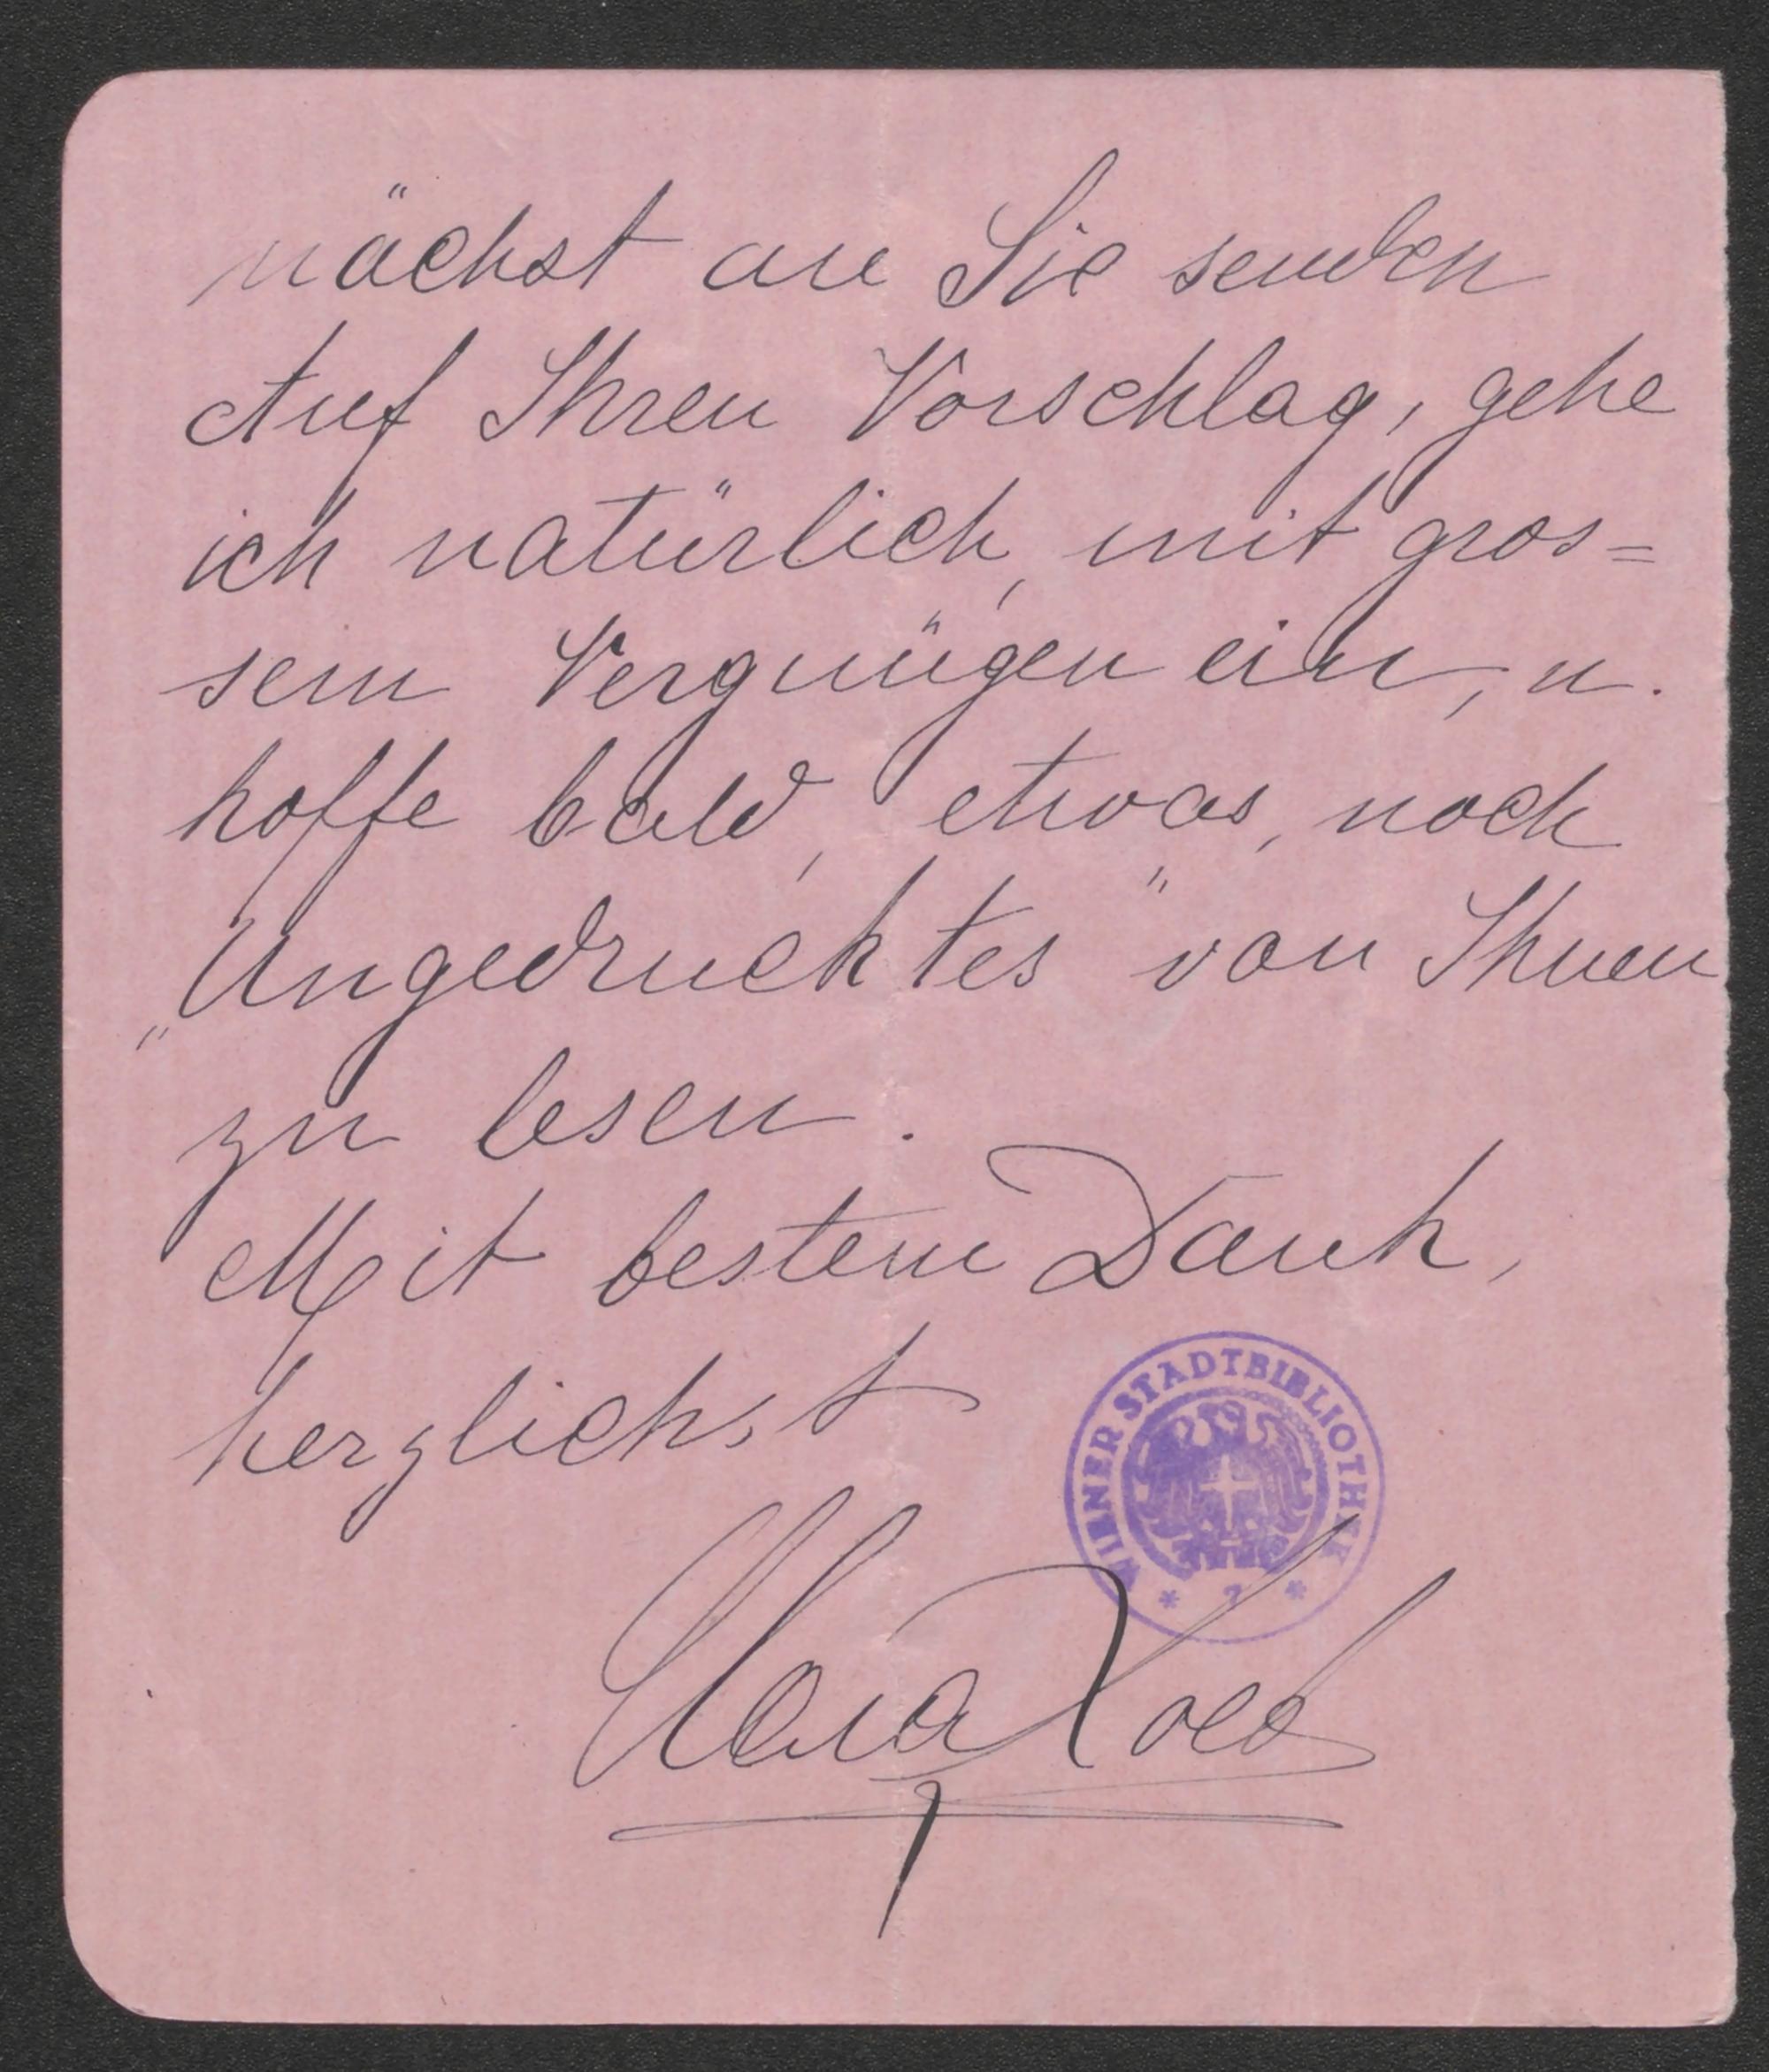 nächst an Sie senden
Auf Ihren Vorschlag, gehe
ich natürlich, mit gros=
sem Vergnügen ein, u.
hoffe bald, etwas, noch
„Ungedrucktes" von Ihnen
zu lesen.
Mit bestem Dank,
herzlichst
WIENER STADTBIBLIOTHEK
Clara Loeb